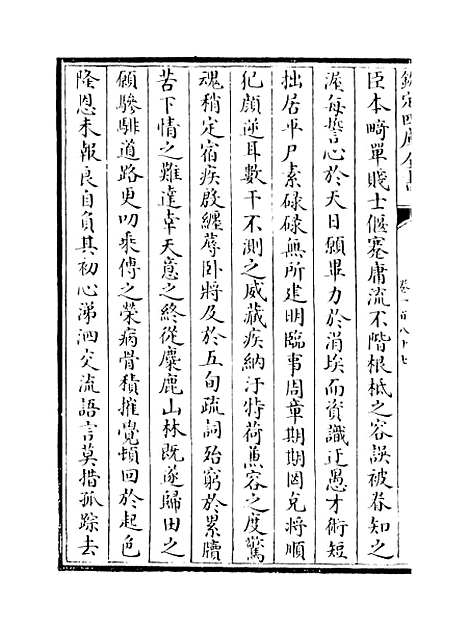 欽定四庫全書
卷一百八十七
臣本畸單賤士偃蹇庸流不階根柢之容誤被眷知之
渥每誓心於天日願畢力於涓埃而資識迂愚才術短
拙居平尸素碌碌無所建明臨事周章期期罔克將順
犯顔逆耳數干不測之威藏疾納汙特荷兼容之度驚
魂稍定宿疾啟纏蓐卧將及於五旬疏詞殆窮於累牘
苦下情之難達幸天意之終從麋鹿山林既遂歸田之
願驂騑道路更叨乘傳之榮病骨積摧覺頓回於起色
隆恩未報良自負其初心涕泗交流語言莫措孤踪去